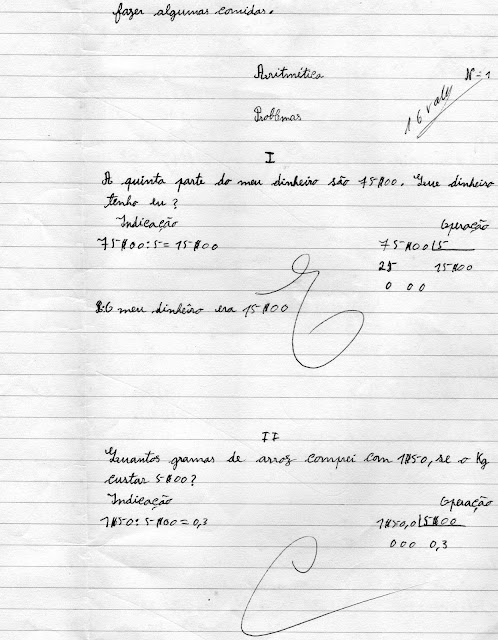 fazer algumas comidas.
Aritmética Nº=1
16 valo
Problemas
I
A quinta parte do meu dinheiro são 75$00. Que dinheiro
tenho eu?
Indicação Operação
75$00:5=15$00 75$00 5
25 15$00
0 00
R:O meu dinheiro era 15$00
II
Quantos gramas de arroz compei com 1$50, se o Kg
custar 5$00?
Indicação Operação
1$50:5$00=0,3 1$50,0 5$00
000 0,3